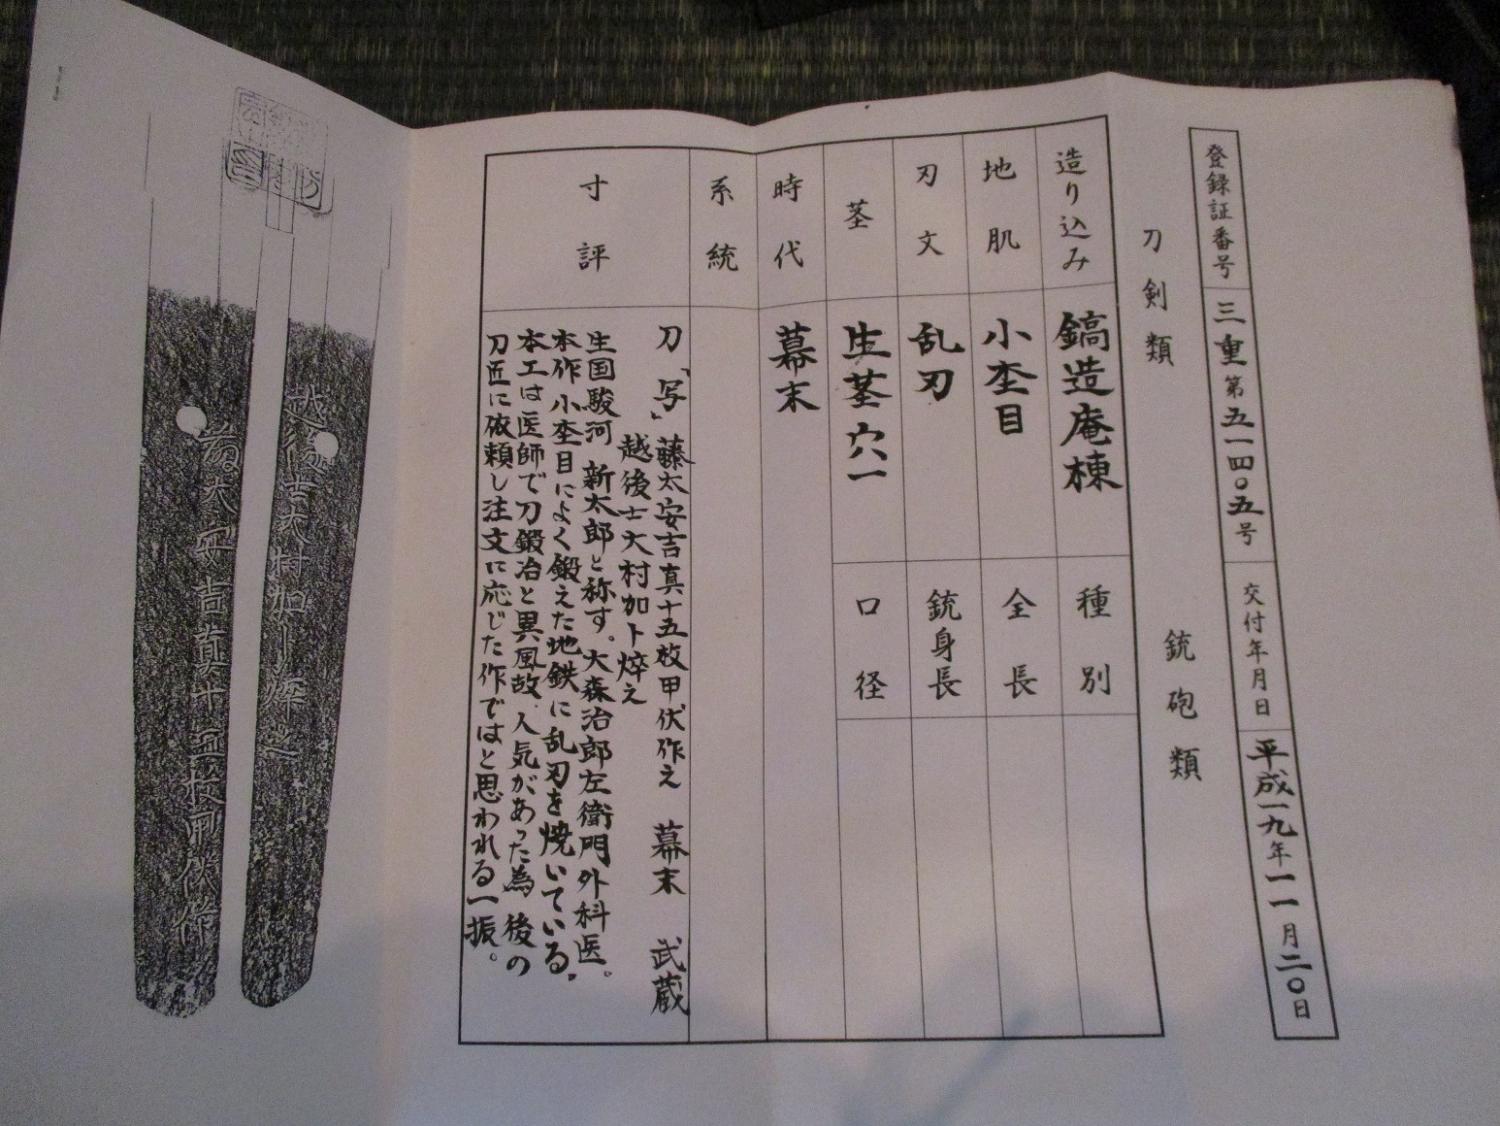 登録証番号 三重第五一四〇五号 交付年月日 平成一九年一一月二〇日
刀剣類 銃砲類
造り込み 鎬造庵棟 種別
地肌 小杢目 全長
刃文 乱刃 銃身長
茎 生茎穴一 口径
時代 幕末
系統
寸評
刀「写」藤太安吉真十五枚甲伏作之 幕末 武蔵
越後士大村加卜焠之
生国駿河 新太郎と称す。大森治郎左衛門外科医。
本作小杢目によく鍛えた地鉄に乱刃を焼いている。
本工は医師で刀鍛冶と異風故、人気があった為後の
刀匠に依頼し注文に応じた作ではと思われる一振。
越後士大村加卜焠之
藤太安吉真十五枚甲伏作